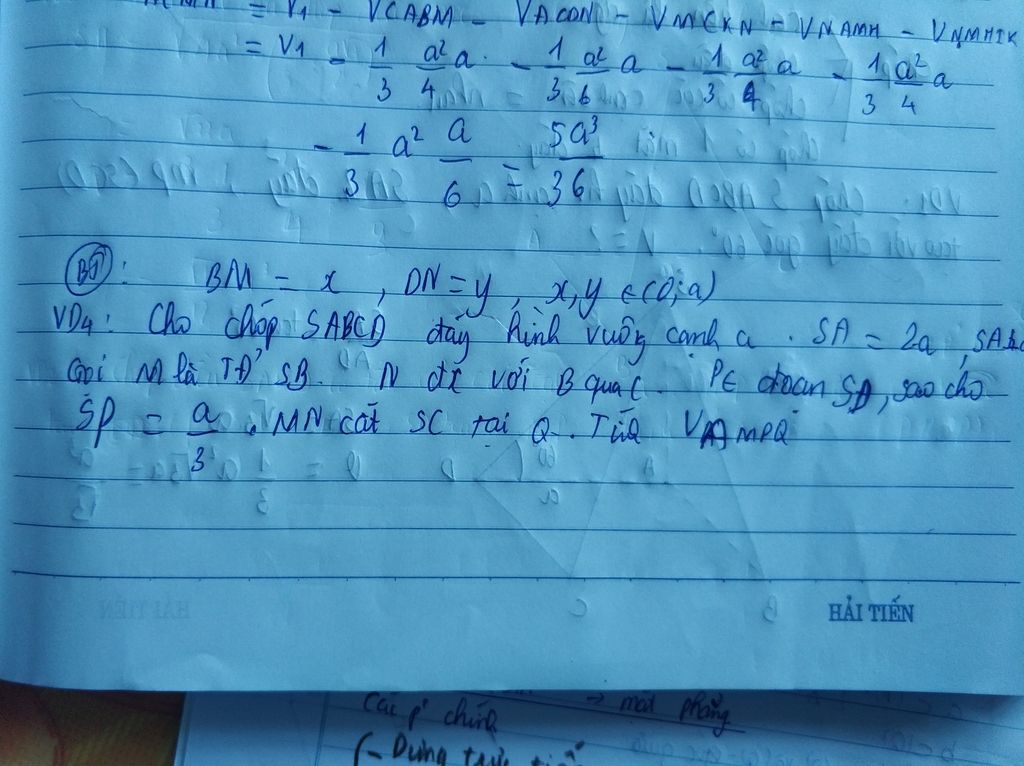 = V1 - VCABM - VACDN - VMCKN - VNAMH -
= V1 - 1/3 a²/4 a - 1/3 a²/6 a - 1/3 a²/4 a - 1/3 a²/4 a
- 1/3 a² a/6 = 5a³/36
BM = x, DN = y, x, y ∈ (0; a)
VD4: Cho chóp SABCD đáy hình vuông cạnh a. SA = 2a,
Gọi M là TĐ SB. N đx với B qua C. P ∈ đoạn SD, sao cho
SP = a/3. MN cắt SC tại Q. Tính VAMPQ
HẢI TIẾN
Các p' chính → mặt phẳng
(- Dựng